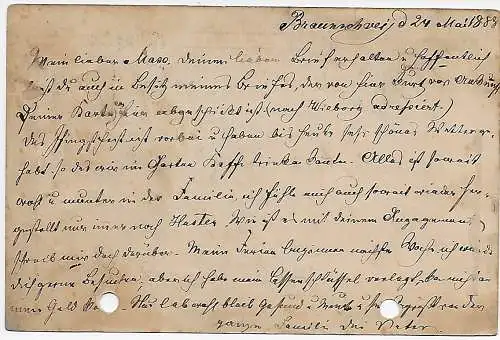 Braunschweig d 24 Mai 1888
Mein lieber Maxo. Deinen lieben Brief erhalten u hoffentlich
bist du auch in Besitz meines Briefes, der von hier kurz vor
Deiner Karte hier abgeschickt ist (nach Wiborg adressiert.)
Das Pfingstfest ist vorbei u haben bis heute sehr schönes Wetter ge-
habt so das wir im Garten Kaffe trinken . Alles ist soweit
u munter in der Familie, ich fühle mich auch soweit wieder her-
gestellt nur immer noch Husten Wie ist es mit deinem Engagement
schreib mir doch darüber. Mein Ferien beginnen nächste Woche ich würde
dich gerne besuchen aber ich habe mein Cassenschlüssel verlegt,
mein Geld . Nu leb bleib Gesund u u sei Gegrüßt von der
ganzen Familie dein Vater.